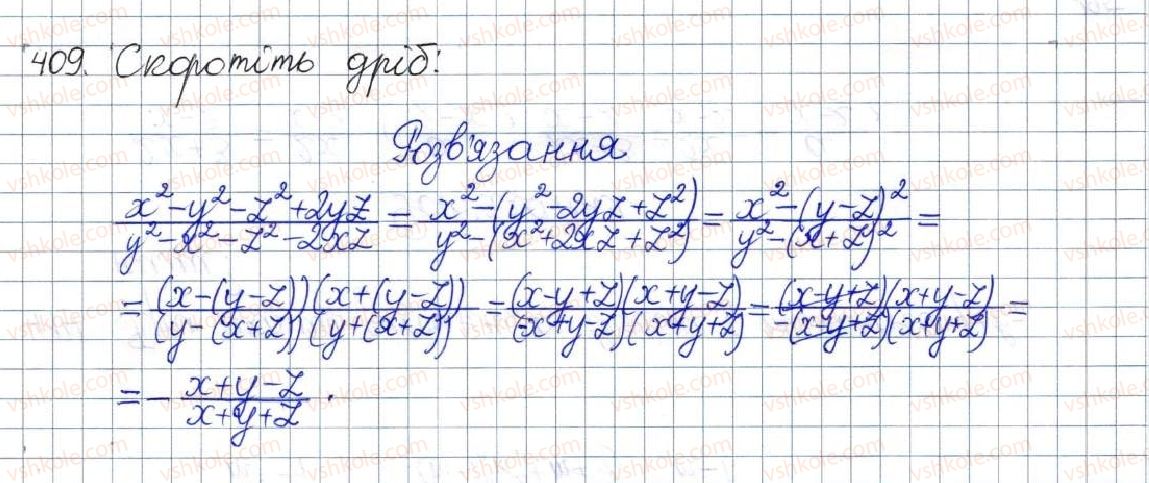 409. Скоротіть дріб:
Розв'язання
(x²-y²-z²+2yz)/(y²-x²-z²-2xz) = (x²-(y²-2yz+z²))/(y²-(x²+2xz+z²)) = (x²-(y-z)²)/(y²-(x+z)²) =
= ((x-(y-z))(x+(y-z)))/((y-(x+z))(y+(x+z))) = ((x-y+z)(x+y-z))/((-x+y-z)(x+y+z)) = ((x-y+z)(x+y-z))/(-(x-y+z)(x+y+z)) =
= - (x+y-z)/(x+y+z).
vshkole.com